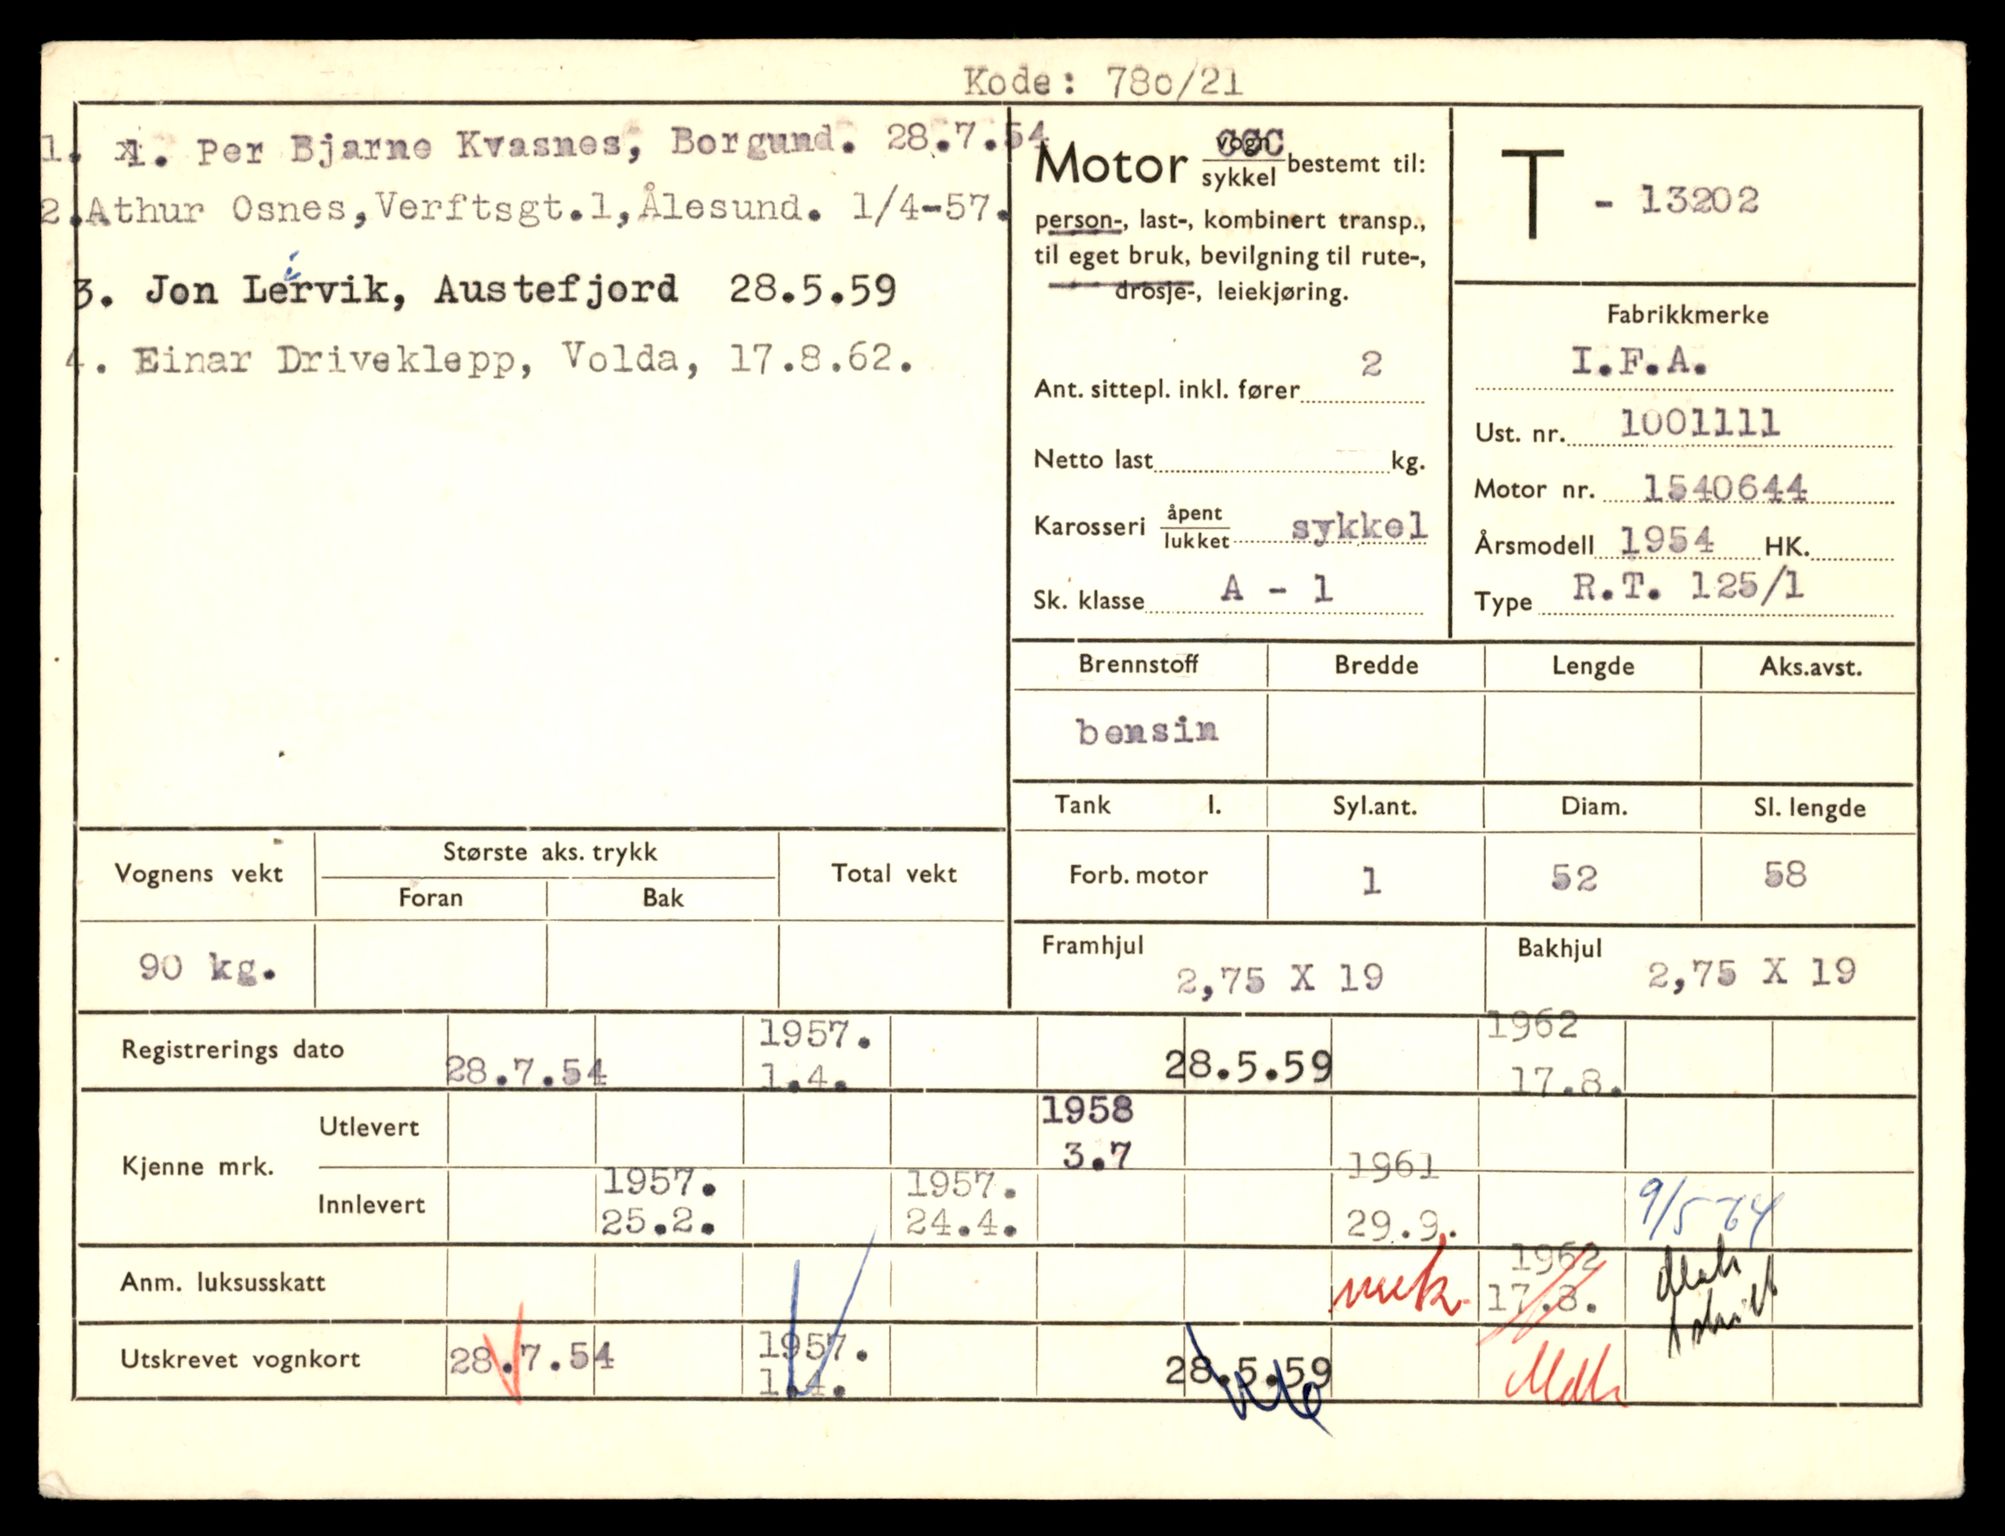 Kode: 780/21
1. x1. Per Bjarne Kvasnes, Borgund. 28.7.54
2. Athur Osnes, Verftsgt.1, Ålesund. 1/4-57.
3. Jon Lervik, Austefjord 28.5.59
4. Einar Driveklepp, Volda, 17.8.62.
Motor vogn/sykkel bestemt til:
person-, last-, kombinert transp.,
til eget bruk, bevilgning til rute-,
drosje-, leiekjøring.
Ant. sittepl. inkl. fører 2
Netto last kg.
Karosseri åpent/lukket sykkel
Sk. klasse A - 1
T - 13202
Fabrikkmerke
I.F.A.
Ust. nr. 1001111
Motor nr. 1540644
Årsmodell 1954 HK.
Type R.T. 125/1
Brennstoff Bredde Lengde Aks.avst.
bensin
Tank l. Syl.ant. Diam. Sl. lengde
Forb. motor 1 52 58
Framhjul 2,75 X 19 Bakhjul 2,75 X 19
Vognens vekt Største aks. trykk Total vekt
Foran Bak
90 kg.
Registrerings dato 28.7.54 1957. 1.4. 28.5.59 1962 17.8.
Kjenne mrk.
Utlevert 1958 3.7
Innlevert 1957. 25.2. 1957. 24.4. 1961 29.9. 9/5-64
Anm. luksusskatt 1962 17.8.
Utskrevet vognkort 28.7.54 1957. 1.4. 28.5.59